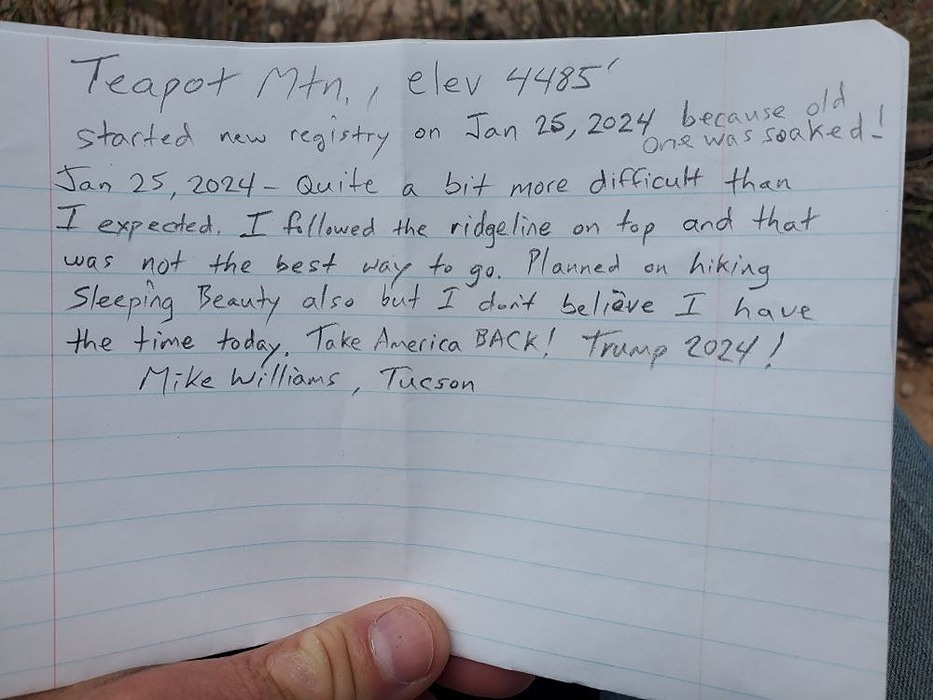 Teapot Mtn., elev 4485'
started new registry on Jan 25, 2024 because old
one was soaked!
Jan 25, 2024 - Quite a bit more difficult than
I expected. I followed the ridgeline on top and that
was not the best way to go. Planned on hiking
Sleeping Beauty also but I don't believe I have
the time today. Take America BACK! Trump 2024!
Mike Williams, Tucson